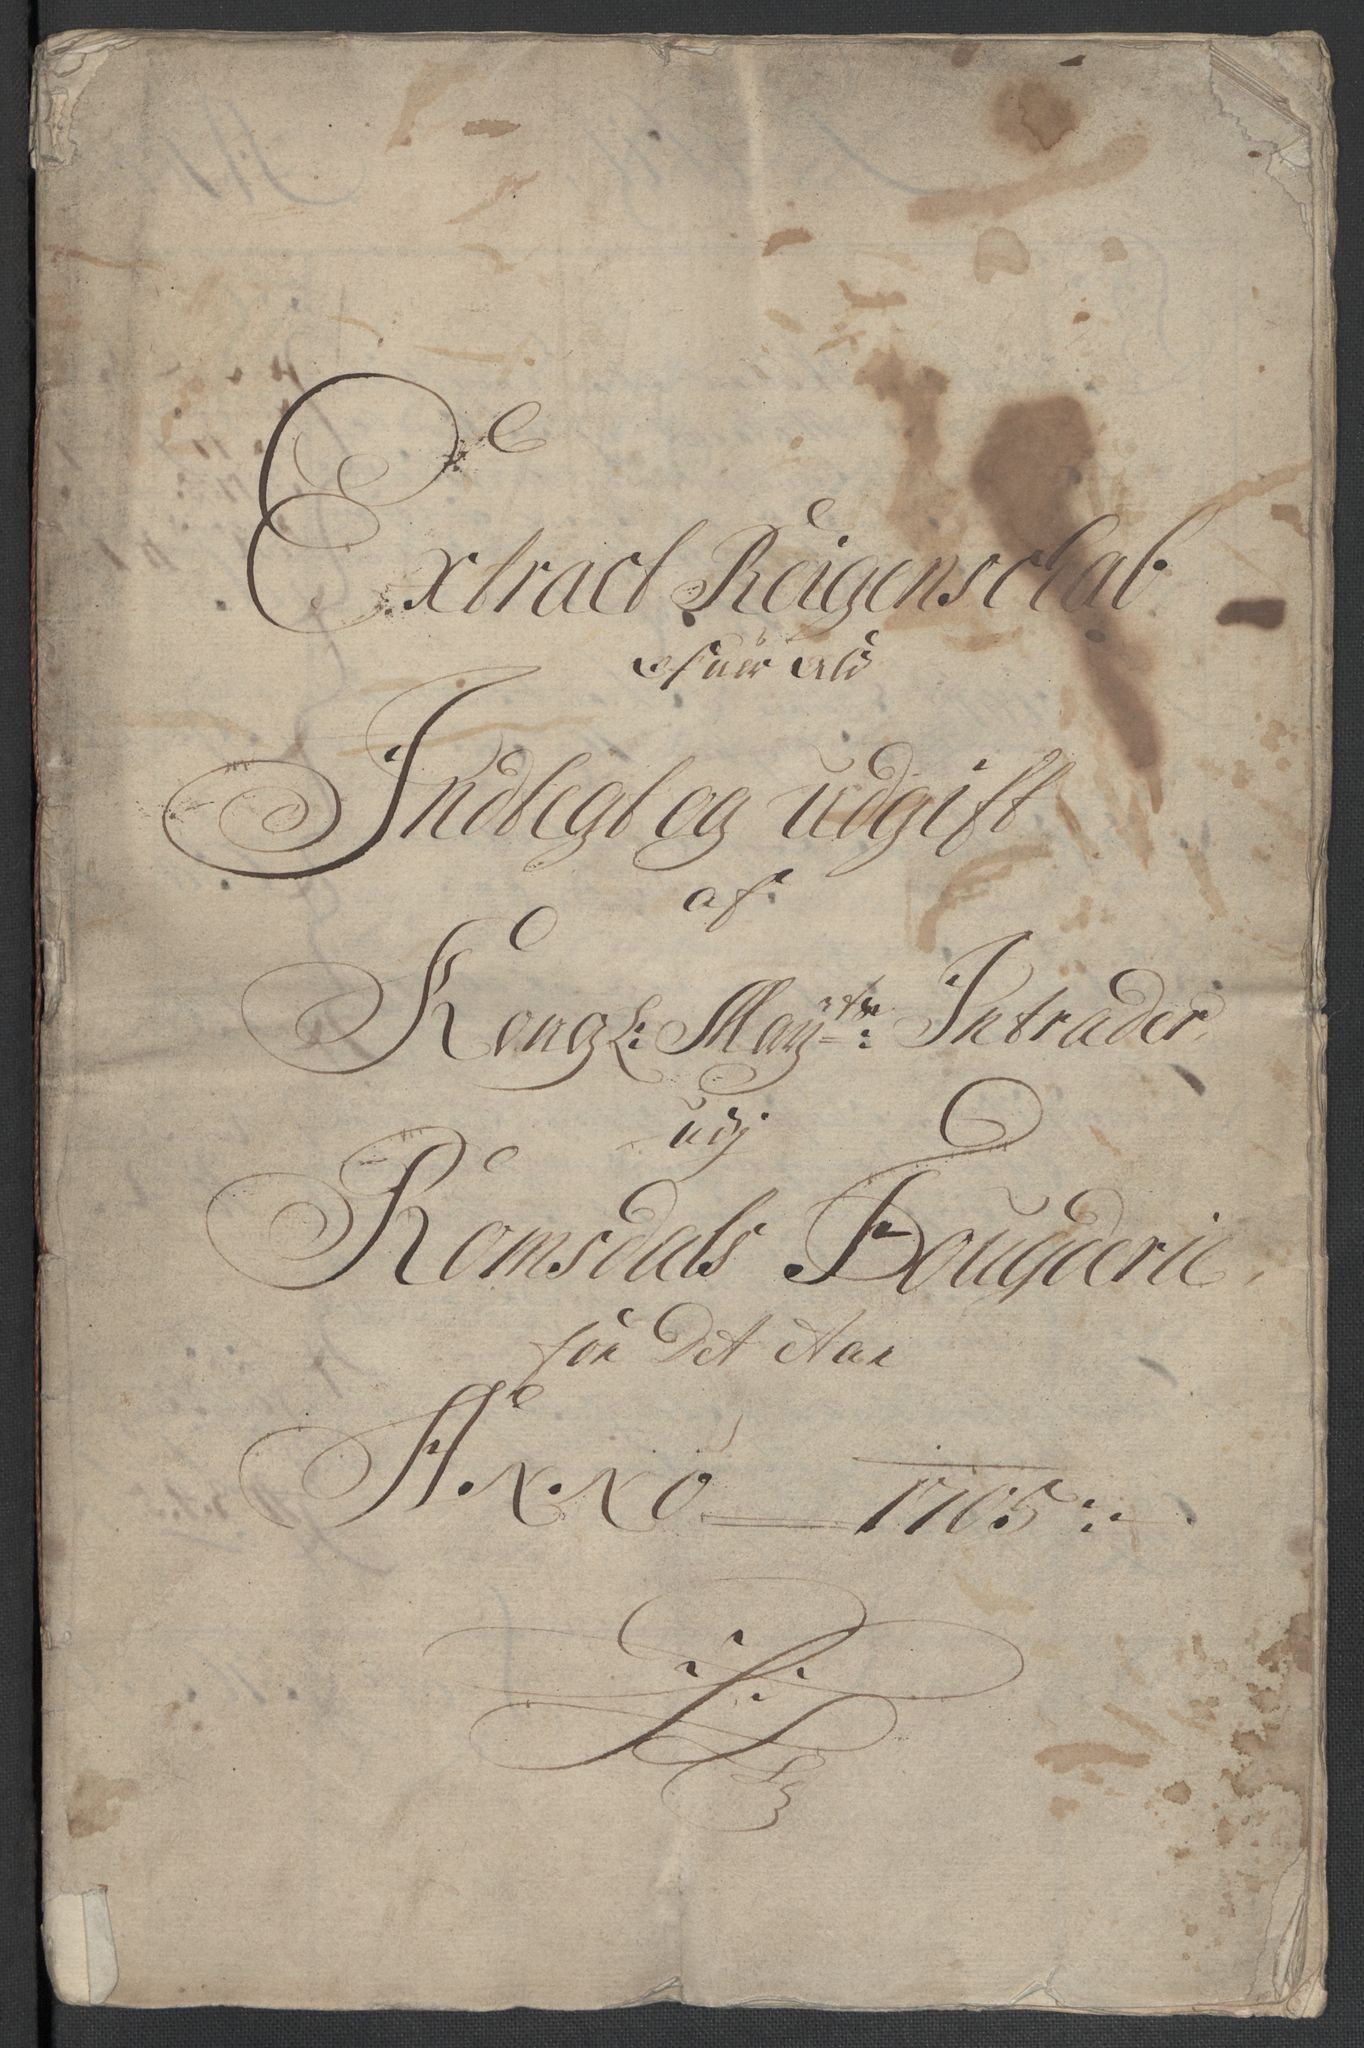 Extract Reigenschab
ofuer Ald
Indtegt og udgift
af
Kongl: May.tz: Intrader,
udj
Romsdals Fougderie,
for Det Aar
Anno 1705